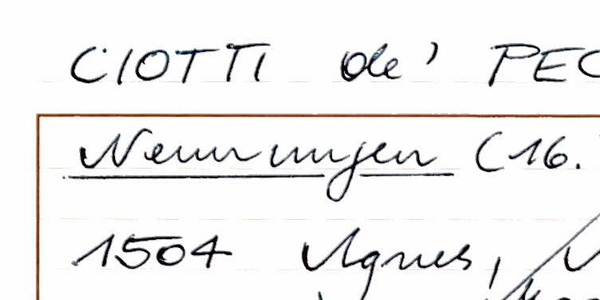 CIOTTI de' PEC
Nennungen (16.
1504 Agnes,